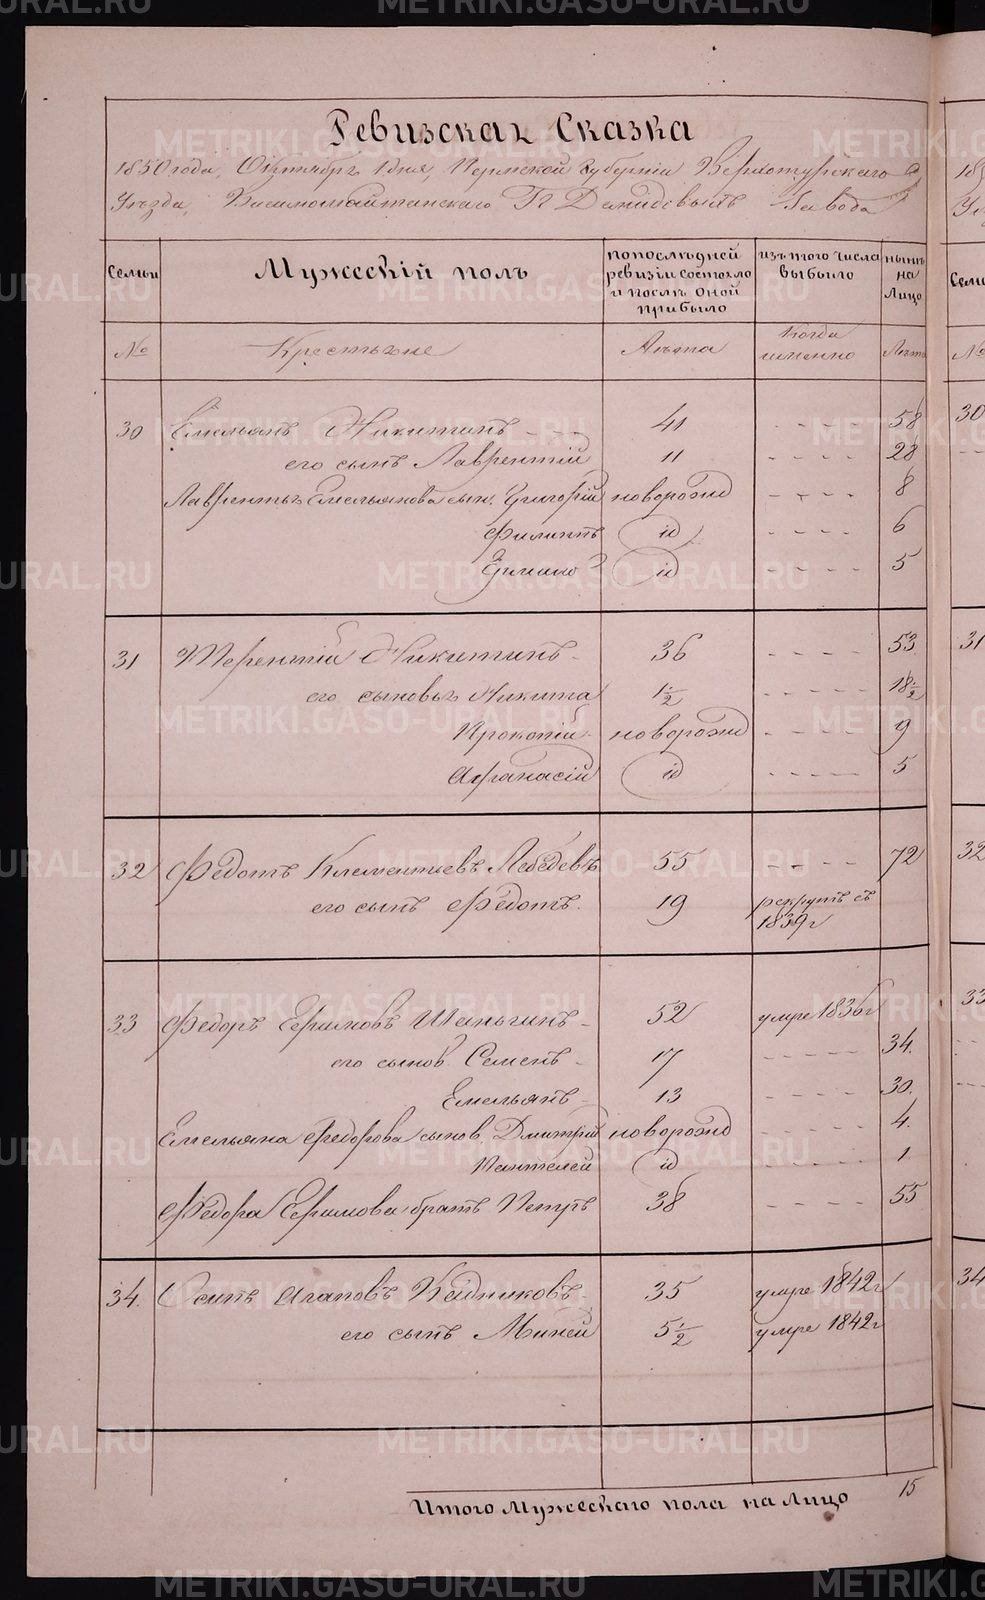 Ревизская Сказка
1850 года, Октября 1 дня, Пермской Губернiи Верхотурскаго
Уѣзда, Висимошайтанскаго Гг Демидовыхъ Завода
Семьи
Мужескiй полъ
по послѣдней ревизiи состояло и послѣ оной прибыло
изъ того числа выбыло
нынѣ на Лицо
№ Крестьяне Лѣта Когда именно Лѣта
30 Емельянъ Никитинъ 41 - - - - 58
его сынъ Лаврентiй 11 - - - - 28
Лаврентья Емельянова сын. Григорiй новорожд - - - - 8
Филиппъ id - - - - 6
id - - - - 5
31 Терентiй Никитинъ 36 - - - - 53
его сыновья Никита 1½ - - - - 18½
Прокопiй новорожд - - - - 9
Афанасiй id - - - - 5
32 Федотъ Клементiевъ Лебедевъ 55 - - - - 72
его сынъ Федотъ 19 рекрутъ съ
1839 г
33 Федоръ Ефимовъ Шаньгинъ 52 умре 1836 г
его сынов. Семенъ 17 - - - - 34.
Емельянъ 13 - - - - 30.
Емельяна Федорова сынов. Дмитрiй новорожд - - - - 4.
Пантелей id - - - - 1
Федора Ефимова братъ Петръ 38 - - - - 55
34. Осипъ Агаповъ Кадниковъ 35 умре 1842 г
его сынъ Миней 5½ умре 1842 г
Итого Мужескаго пола на Лицо 15
METRIKI.GASO-URAL.RU